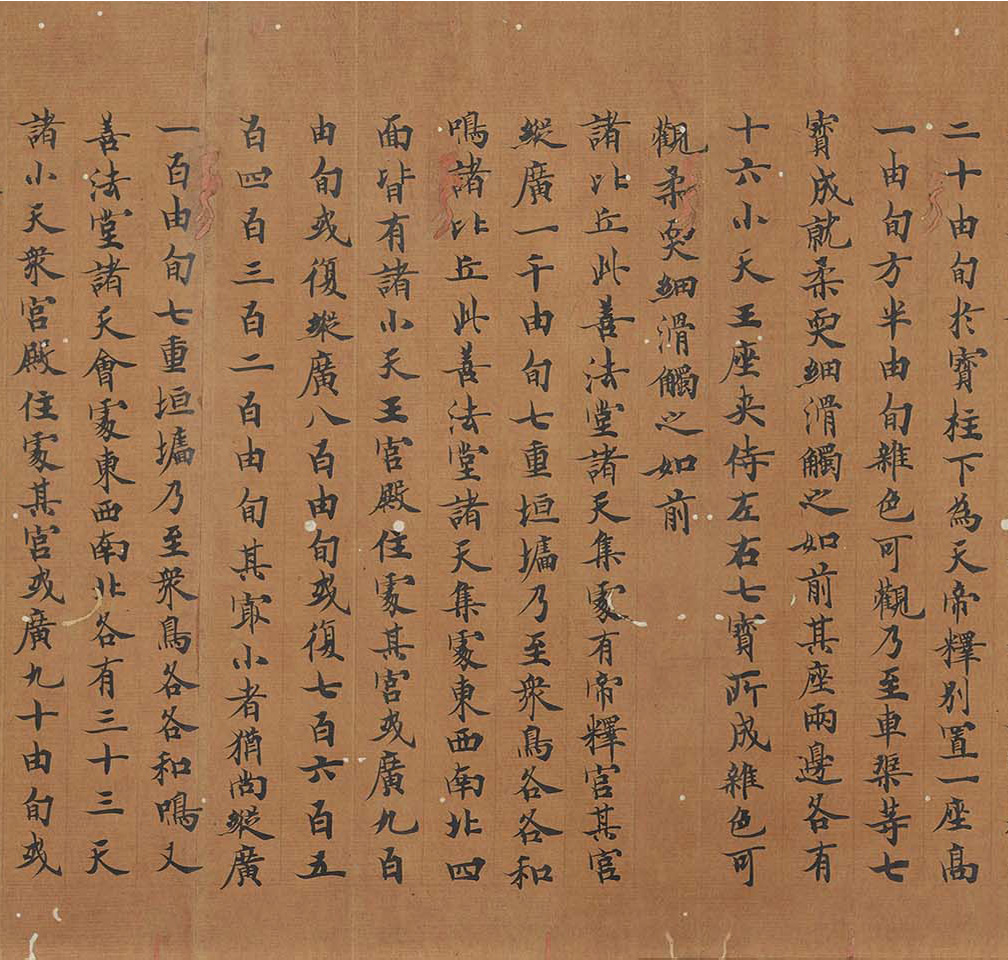 二十由旬於寶柱下為天帝釋別置一座高
一由旬方半由旬雜色可觀乃至車渠等七
寶成就柔耎細滑觸之如前其座兩邊各有
十六小天王座夾侍左右七寶所成雜色可
觀柔耎細滑觸之如前
諸比丘此善法堂諸天集處有帝釋宮其宮
縱廣一千由旬七重垣墻乃至眾鳥各各和
鳴諸比丘此善法堂諸天集處東西南北四
面皆有諸小天王宮殿住處其宮或廣九百
由旬或復縱廣八百由旬或復七百六百五
百四百三百二百由旬其寂小者猶尚縱廣
一百由旬七重垣墻乃至眾鳥各各和鳴又
善法堂諸天會處東西南北各有三十三天
諸小天眾宮殿住處其宮或廣九十由旬或